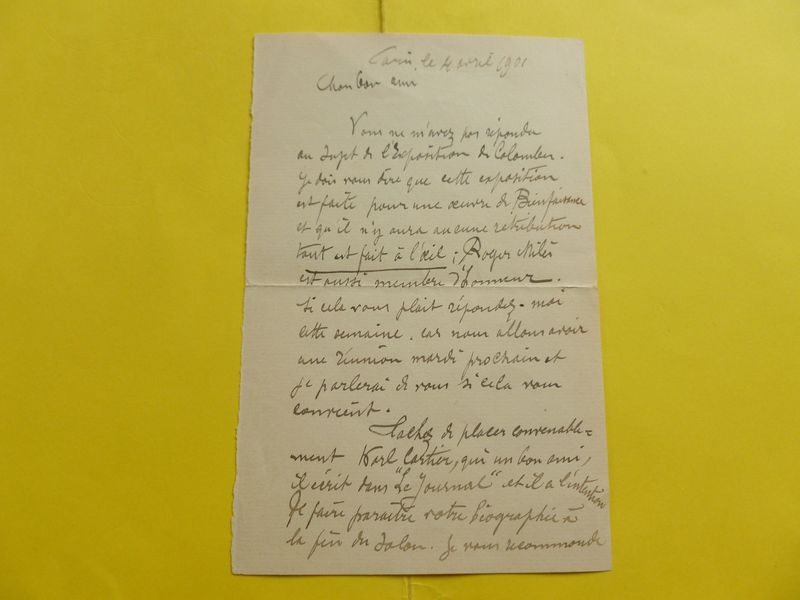 Paris, le 4 avril 1901
Mon bon ami
Vous ne m'avez pas répondu
au sujet de l'Exposition de Colombes.
Je dois vous dire que cette exposition
est faite pour une œuvre de Bienfaisance
et qu'il n'y aura aucune rétribution
tout est fait à l'œil ; Roger Milès
est aussi membre d'Honneur.
Si cela vous plait répondez-moi
cette semaine. car nous allons avoir
une réunion mardi prochain et
je parlerai de vous si cela vous
convient.
Tachez de placer convenable=
ment Karl Cartier, qui un bon ami,
il écrit dans "Le Journal" et il a l'intention
de faire paraître votre biographie à
la fin du Salon. Je vous recommande